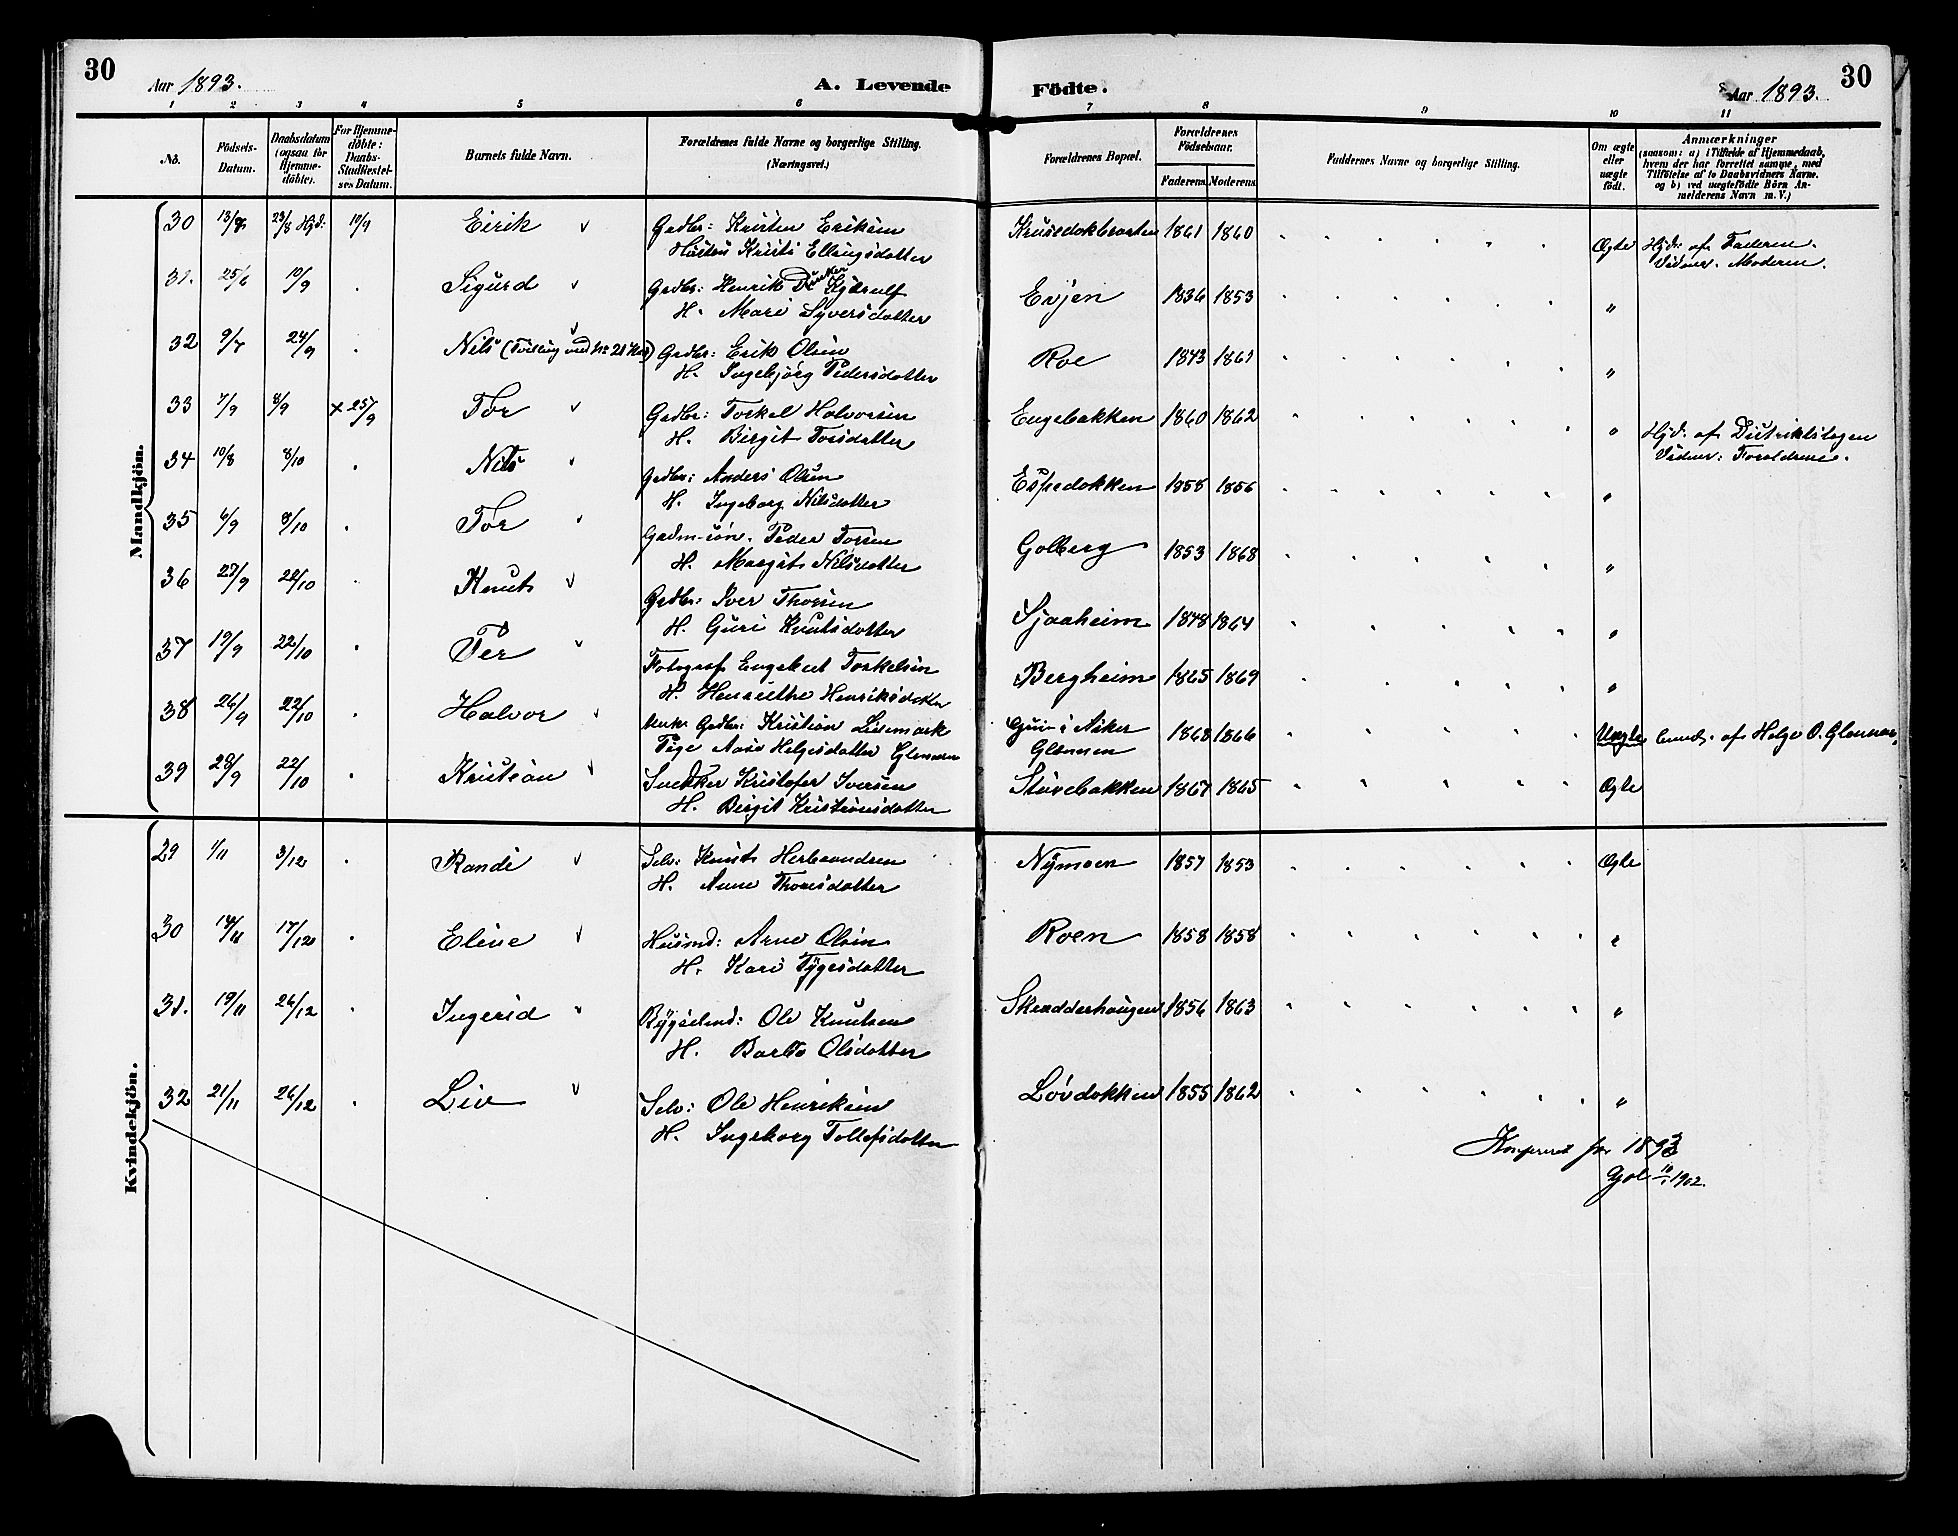 30
Aar 1893.
A. Levende
Födte.
Aar 1893.
30
1 2 3 4 5 6 7 8 9 10 11
No.
Födsels-
Datum.
Daabsdatum
(ogsaa for
Hjemme-
döbte).
For Hjemme-
döbte:
Daabs-
Stadfæstel-
ses Datum.
Barnets fulde Navn.
Forældrenes fulde Navne og borgerlige Stilling.
(Næringsvei.)
Forældrenes Bopæl.
Forældrenes
Födselsaar.
Faderens. Moderens.
Faddernes Navne og borgerlige Stilling.
Om ægte
eller
uægte
født.
Anmærkninger
(saasom: a) i Tilfælde af Hjemmedaab,
hvem der har forrettet samme, med
Tilföielse af to Daabsvidners Navne.
og b) ved uægtefödte Börn An-
melderens Navn m. V.)
Mandkjön.
30 13/8 23/8 Hjd: 10/9 Eirik Grdbr: Kristen Eriksen Krusedokbraaten 1861 1860 Ægte Hjd. af Faderen.
Hustru Kristi Ellingsdatter Vidner. Moderen.
31. 25/6 10/9 Sigurd Grdbr: Henrik Kjerulf Evjen 1836 1853 "
H. Mari Syversdatter
32 9/7 24/9 Nils (Tvilling med No 21 Kvk) Grdbr: Erik Olsen Roe 1843 1861 "
H. Ingebjörg Pedersdatter
33 7/9 8/9 x 25/9 Tor Grdbr: Torkel Halvorsen Engebakken 1860 1862 " Hjd. af Distriktslægen
H. Birgit Torsdatter Vidner: Forældrene.
34 10/8 8/10 Nils Grdbr: Anders Olsen Espedokken 1858 1856 "
H. Ingeborg Nilsdatter
35 6/9 8/10 Tor Grdm-sön. Peder Torsen Golberg 1853 1868 "
H. Margit Nilsdatter
36 27/9 22/10 Knut Grdbr: Iver Thorsen Sjaaheim 1848 1864 "
H. Guri Knutsdatter
37 19/9 22/10 Per Fotograf Engebret Torkelsen Bergheim 1865 1869 "
H. Henriette Henriksdatter
38 26/9 22/10 Halvor Grdbr: Kristian i Aker 1868 1866 Uægte af Helge O. Glemmen.
Pige Aase Helgesdatter Glemmen Glemmen
39 28/9 22/10 Kristian Snekker Kristofer Iversen Stuvebakken 1867 1865 Ægte
H. Birgit Kristiansdatter
Kvindekjön.
29 1/11 3/12 Randi Selv: Knut Herbrandsen Nymoen 1857 1853 Ægte
H. Anne Thoresdatter
30 14/11 17/12 Eline Husmd: Arne Olsen Roen 1858 1858 "
H. Kari Tygesdatter
31. 19/11 26/12 Ingerid Bygselmd: Ole Knutsen Skradderhaugen 1856 1863 "
H. Barbo Olsdatter
32 21/11 26/12 Liv Selv: Ole Henriksen Lövdokken 1855 1862 "
H. Ingeborg Tollefsdatter
Konfereret for 1893
Gol 10/1 1902.